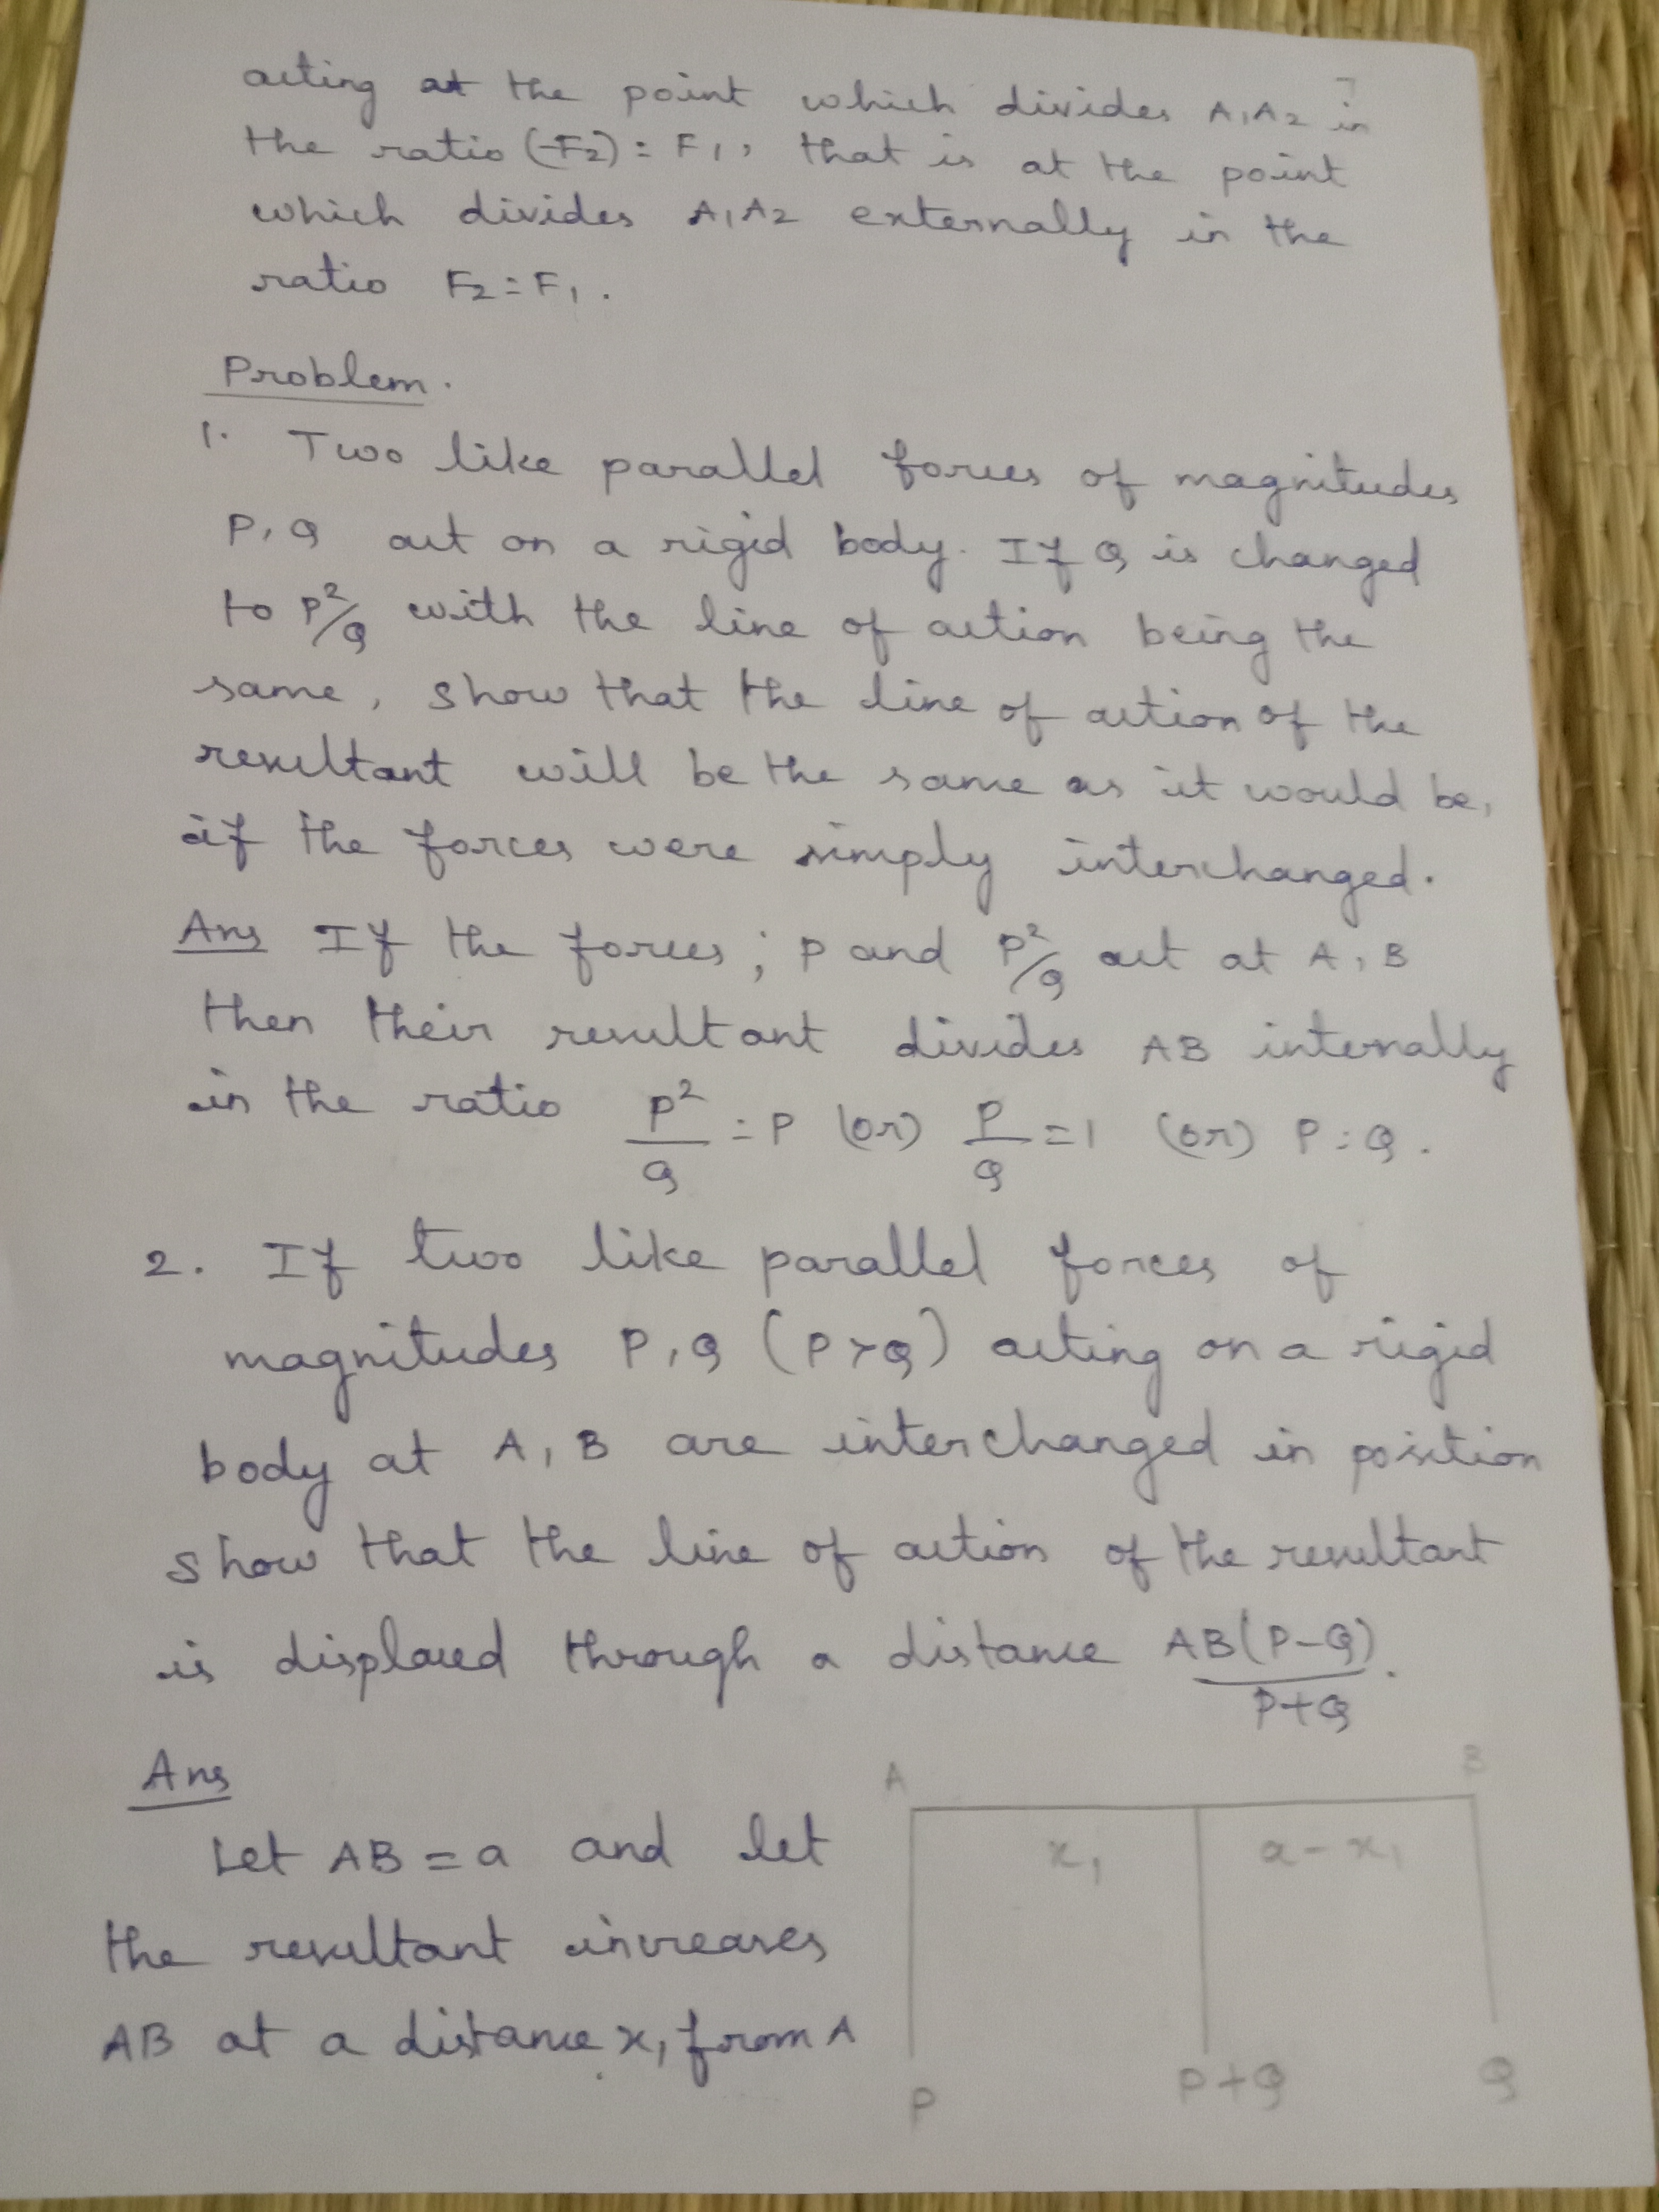 7
acting at the point which divides A₁A₂ in
the ratio (-F₂) : F₁, that is at the point
which divides A₁A₂ externally in the
ratio F₂ : F₁.
Problem.
1. Two like parallel forces of magnitudes
P, Q act on a rigid body. If Q is changed
to P²/Q with the line of action being the
same, show that the line of action of the
resultant will be the same as it would be,
if the forces were simply interchanged.
Ans If the forces; P and P²/Q act at A, B
then their resultant divides AB internally
in the ratio P²/Q : P (or) P/Q : 1 (or) P : Q.
2. If two like parallel forces of
magnitudes P, Q (P>Q) acting on a rigid
body at A, B are interchanged in position
show that the line of action of the resultant
is displaced through a distance AB(P-Q)/P+Q.
Ans
Let AB = a and let
the resultant increases
AB at a distance x₁ from A
A B
x₁ a-x₁
P P+Q Q